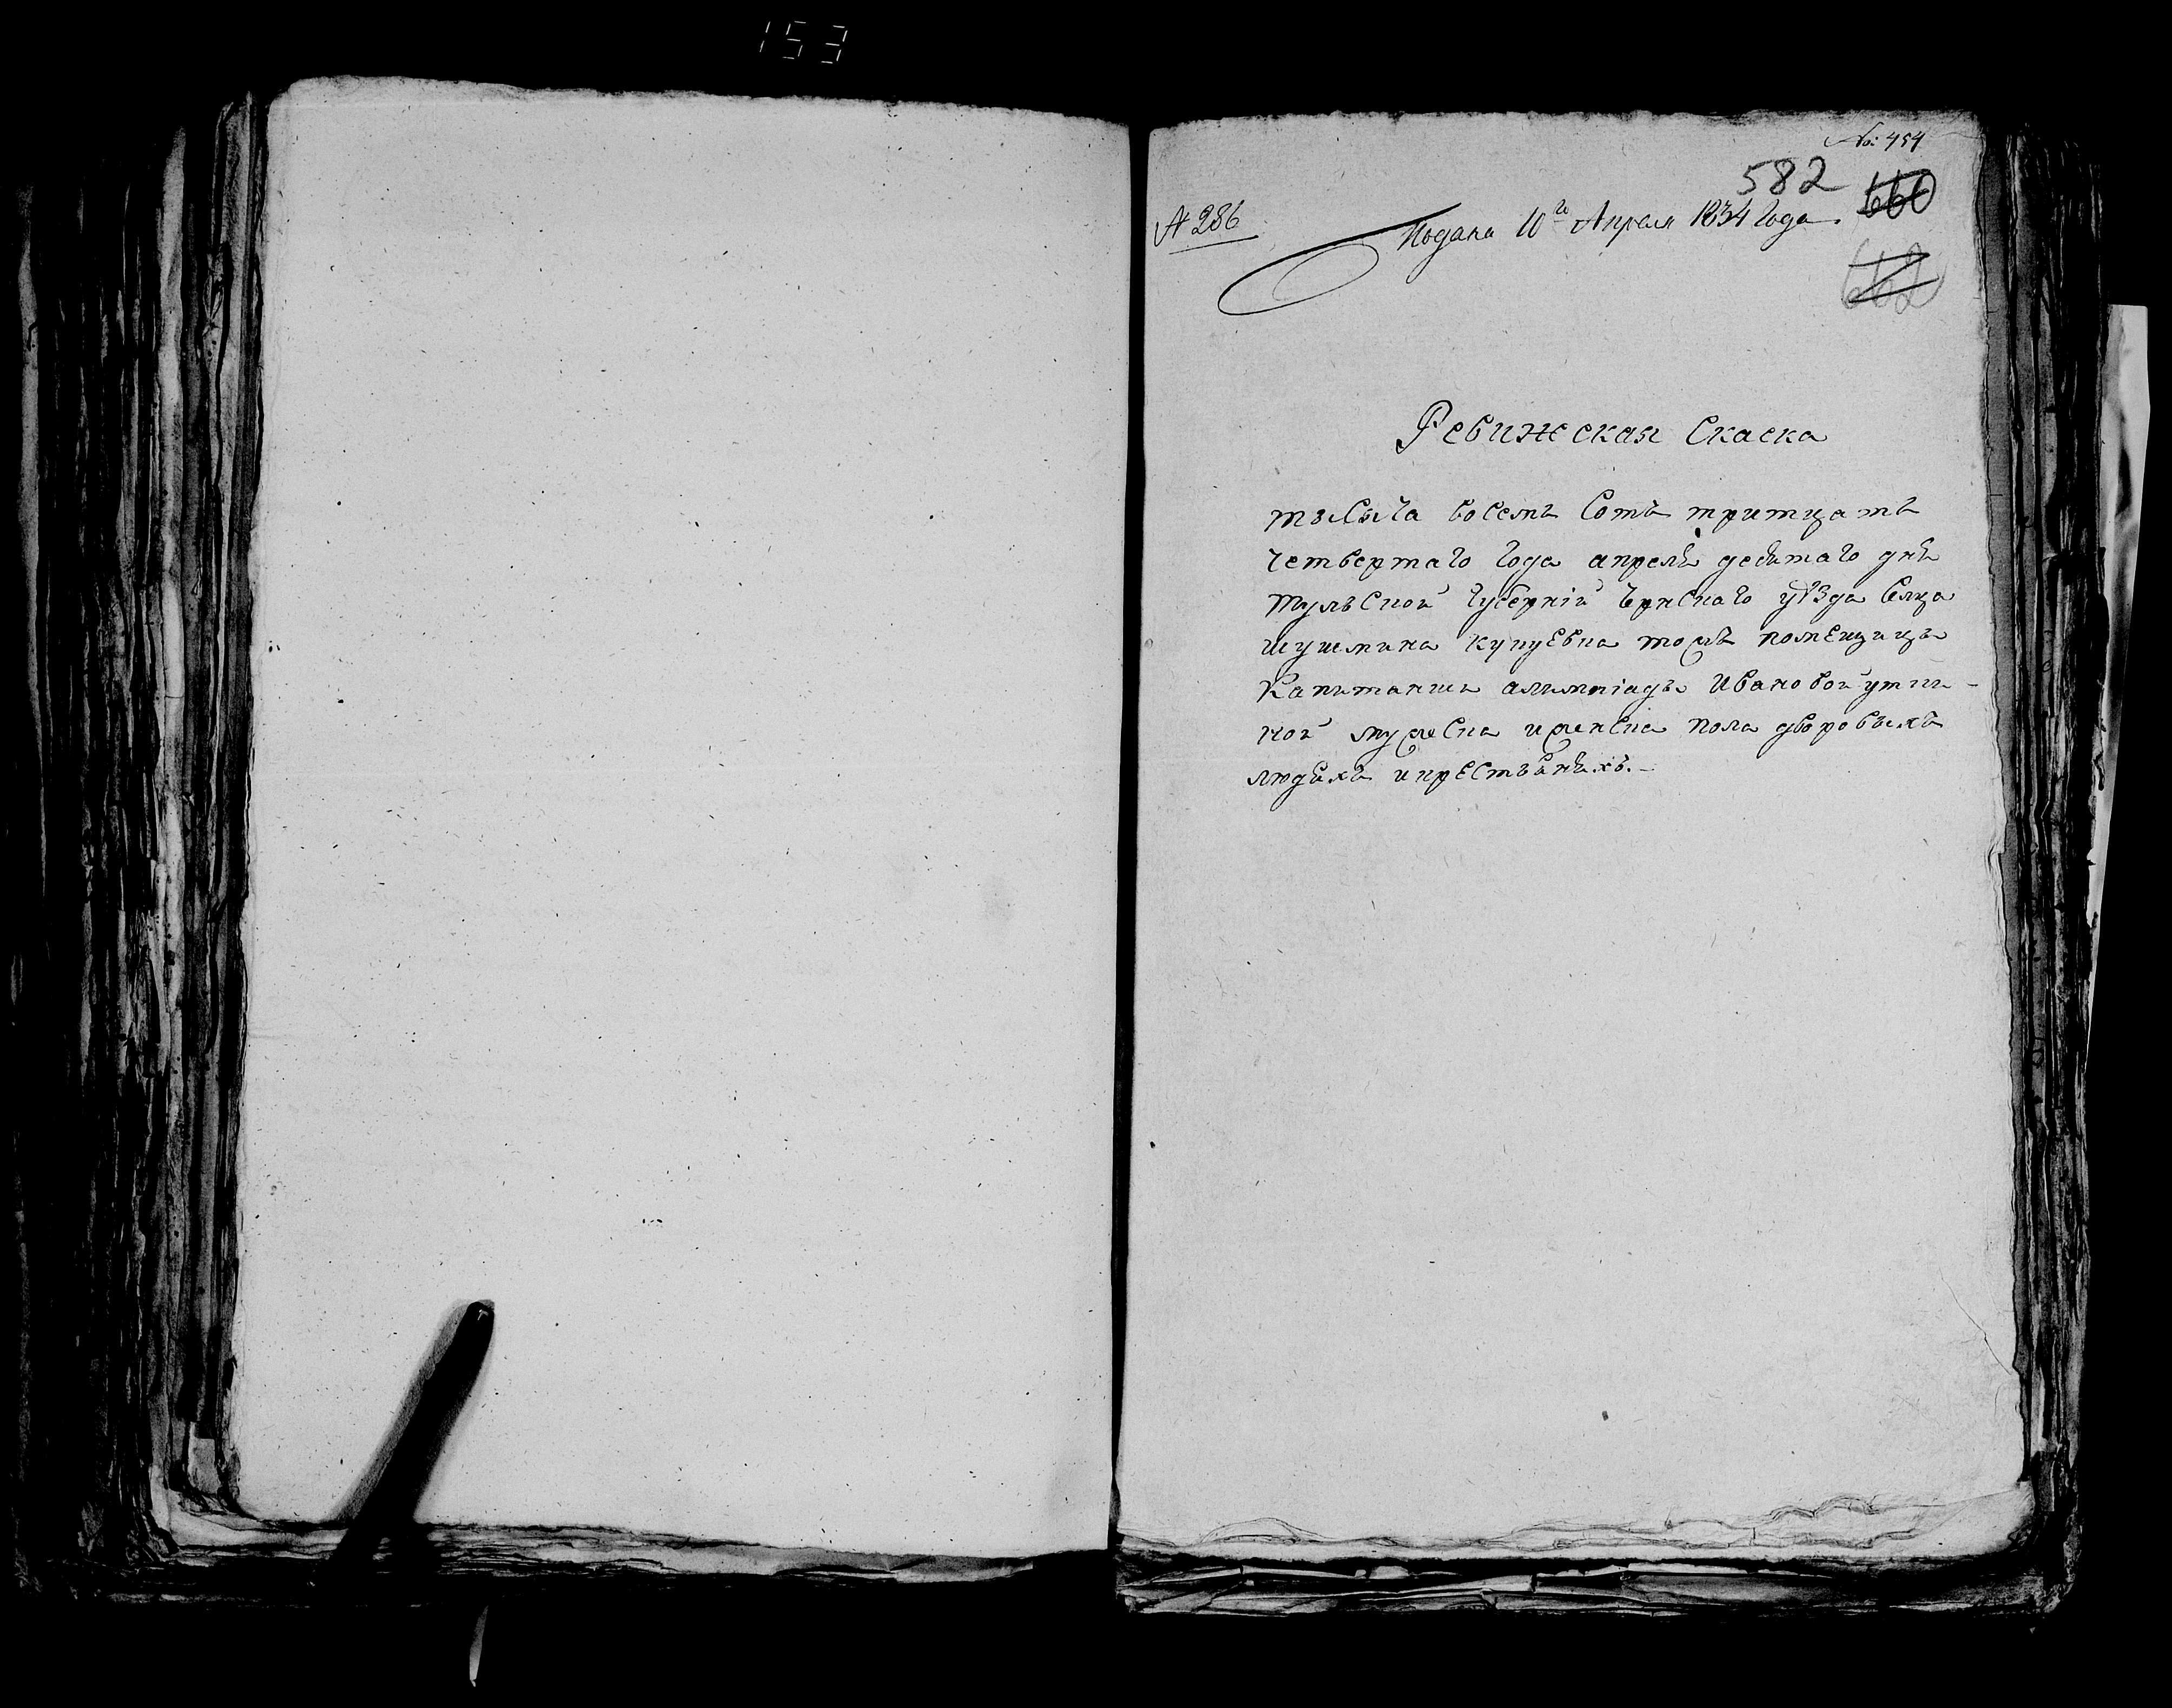 153
No: 454
582 660
№ 286
Подана 10го Апреля 1834 Года.
662
Ревижская Скаска
тысыча восемъ Сотъ тритцатъ
четвертаго Года апреля девятаго дня
тулъской Губерніи Чернскаго уѣзда Селца
шушмина тожъ помещицы
Капитанши алимпіады Ивановой утки-
ной мужеска иженска пола дворовыхъ
людяхъ икрестьянехъ.-